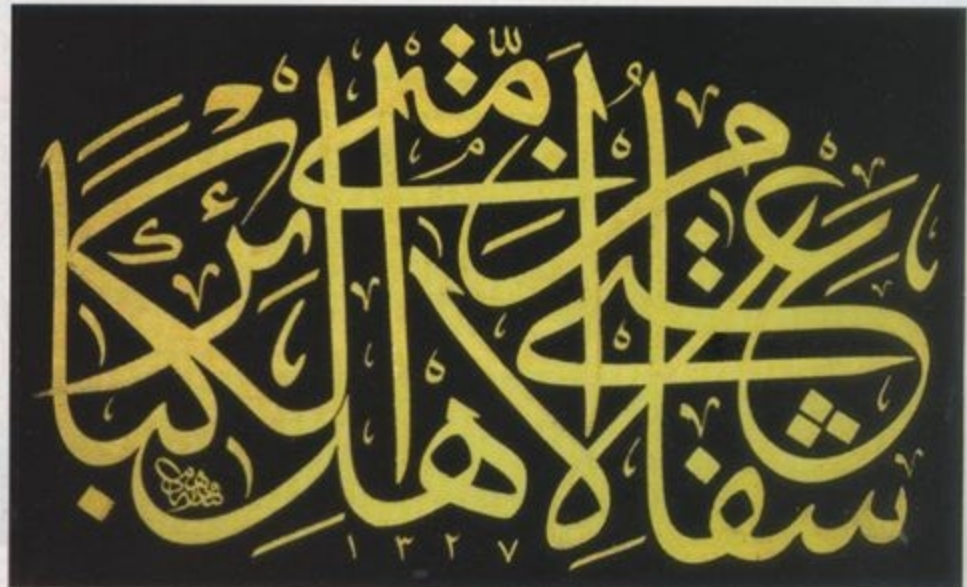 شفاعتى لاهل الكبائر من امتى
١٣٢٧